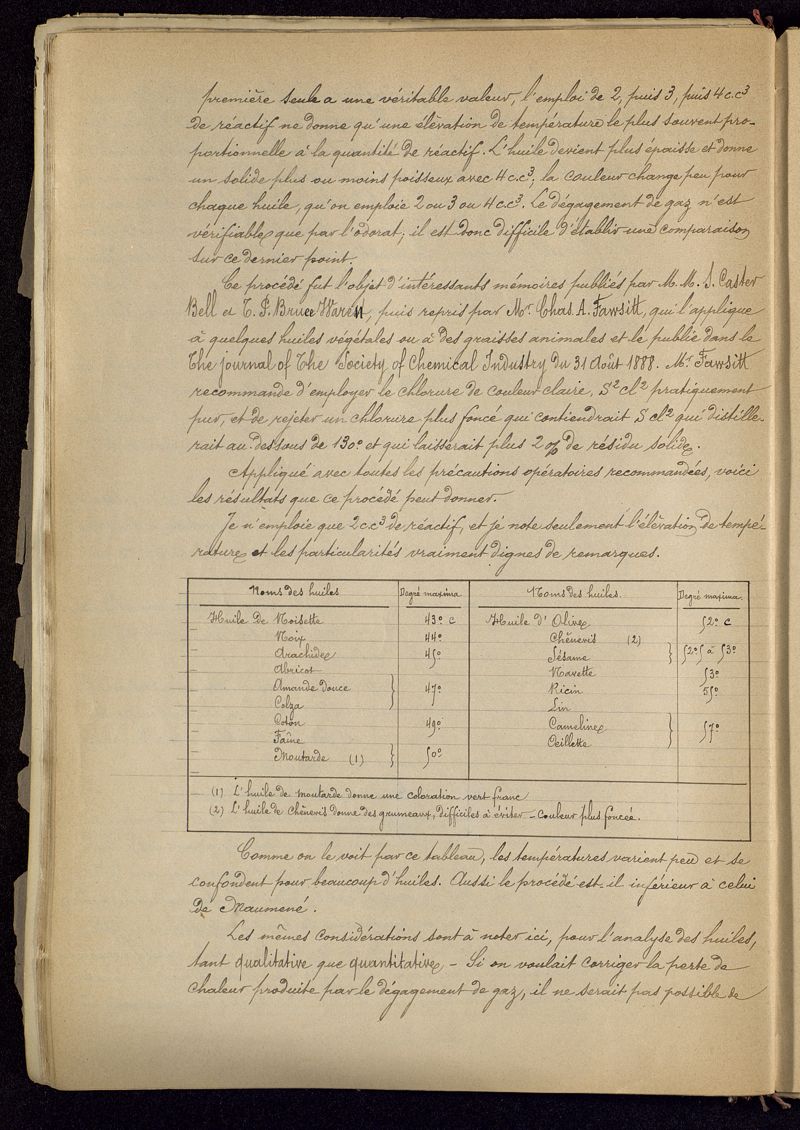 première seule a une véritable valeur, l'emploi de 2, puis 3, puis 4 c.c³
de réactif ne donne qu'une élévation de température le plus souvent pro-
portionnelle à la quantité de réactif. L'huile devient plus épaisse et donne
un solide plus ou moins poisseux avec 4 c.c³, la couleur change peu pour
chaque huile, qu'on emploie 2 ou 3 ou 4 c.c³. Le dégagement de gaz n'est
vérifiable que par l'odorat; il est donc difficile d'établir une comparaison
sur ce dernier point.
Ce procédé fut l'objet d'intéressants mémoires publiés par M.M. J. Caster
Bell et T. P. Bruce Waren, puis repris par Mr Chas. A. Fawsitt, qui l'applique
à quelques huiles végétales ou à des graisses animales et le publie dans le
The journal of The Society of Chemical Industry du 31 Août 1888. Mr Fawsitt
recommande d'employer le chlorure de couleur claire, S² cl² pratiquement
pur, et de rejeter un chlorure plus foncé qui contiendrait S cl² qui distille-
rait au-dessous de 130° et qui laisserait plus 2% de résidu solide.
Appliqué avec toutes les précautions opératoires recommandées, voici
les résultats que ce procédé peut donner.
Je n'emploie que 2 c.c³ de réactif, et je note seulement l'élévation de tempé-
rature et les particularités vraiment dignes de remarques.
Noms des huiles Degré maxima Noms des huiles. Degré maxima
Huile de Noisette 43° c Huile d'Olive 52° c
Noix 44° Chènevis (2)
Arachide 45° Sésame } 52°5 à 53°
Abricot Navette 53°
Amande douce } 47° Ricin 55°
Colza Lin
Coton 49° Cameline } 57°
Faîne Oeillette
Moutarde (1) } 50°
(1) L'huile de moutarde donne une coloration vert franc
(2) L'huile de Chènevis donne des grumeaux, difficiles à éviter - couleur plus foncée.
Comme on le voit par ce tableau, les températures varient peu et se
confondent pour beaucoup d'huiles. Aussi le procédé est-il inférieur à celui
de Maumené.
Les mêmes considérations sont à noter ici, pour l'analyse des huiles,
tant qualitative que quantitative. - Si on voulait corriger la perte de
chaleur produite par le dégagement de gaz, il ne serait pas possible de